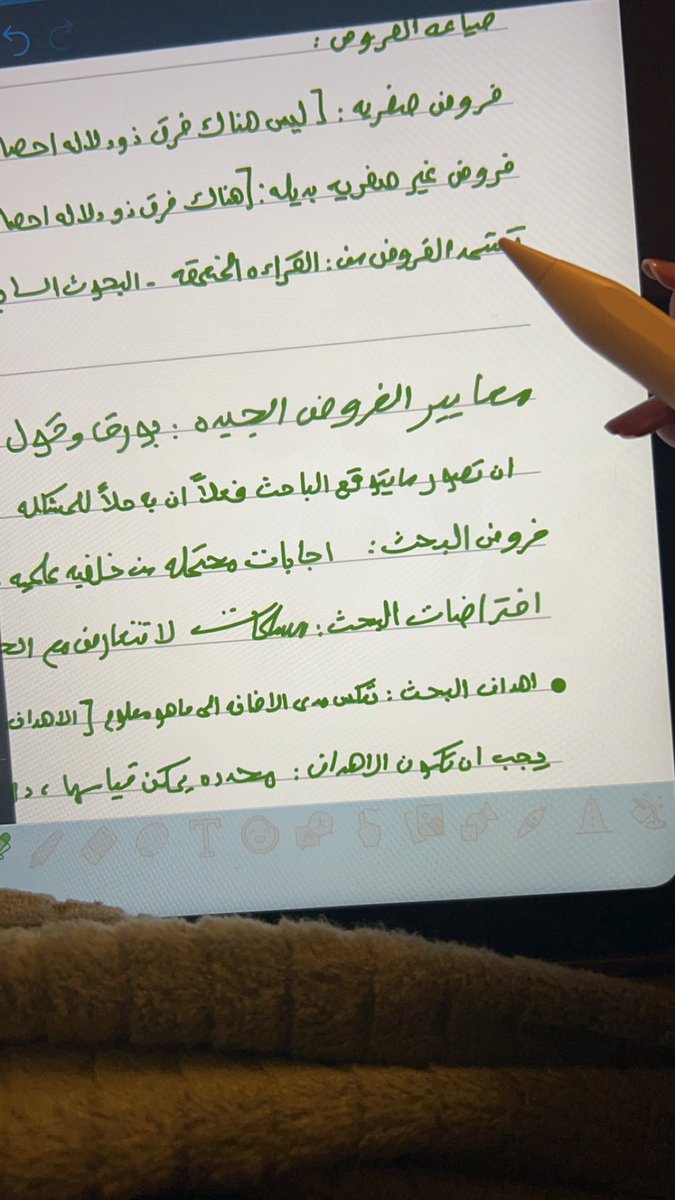 صياغه الفروض :
فروض صفريه : [ ليس هناك فرق ذو دلاله احصا
فروض غير صفريه بديله : [ هناك فرق ذو دلاله احصا
تستمد الفروض من : القراءه المتعمقه - البحوث السا
معايير الفروض الجيده : بورق وقول
ان تصور مايتوقع الباحث فعلاً ان حلاً للمشكله
فروض البحث : اجابات محتمله من خلفيه علميه
افتراضات البحث : مسلمات لا تتعارض مع الح
• اهداف البحث : تعكس مدى الاضافه الى ماهو معلوم [ الاهداف
يجب ان تكون الاهداف : محدده يمكن قياسها ،
T